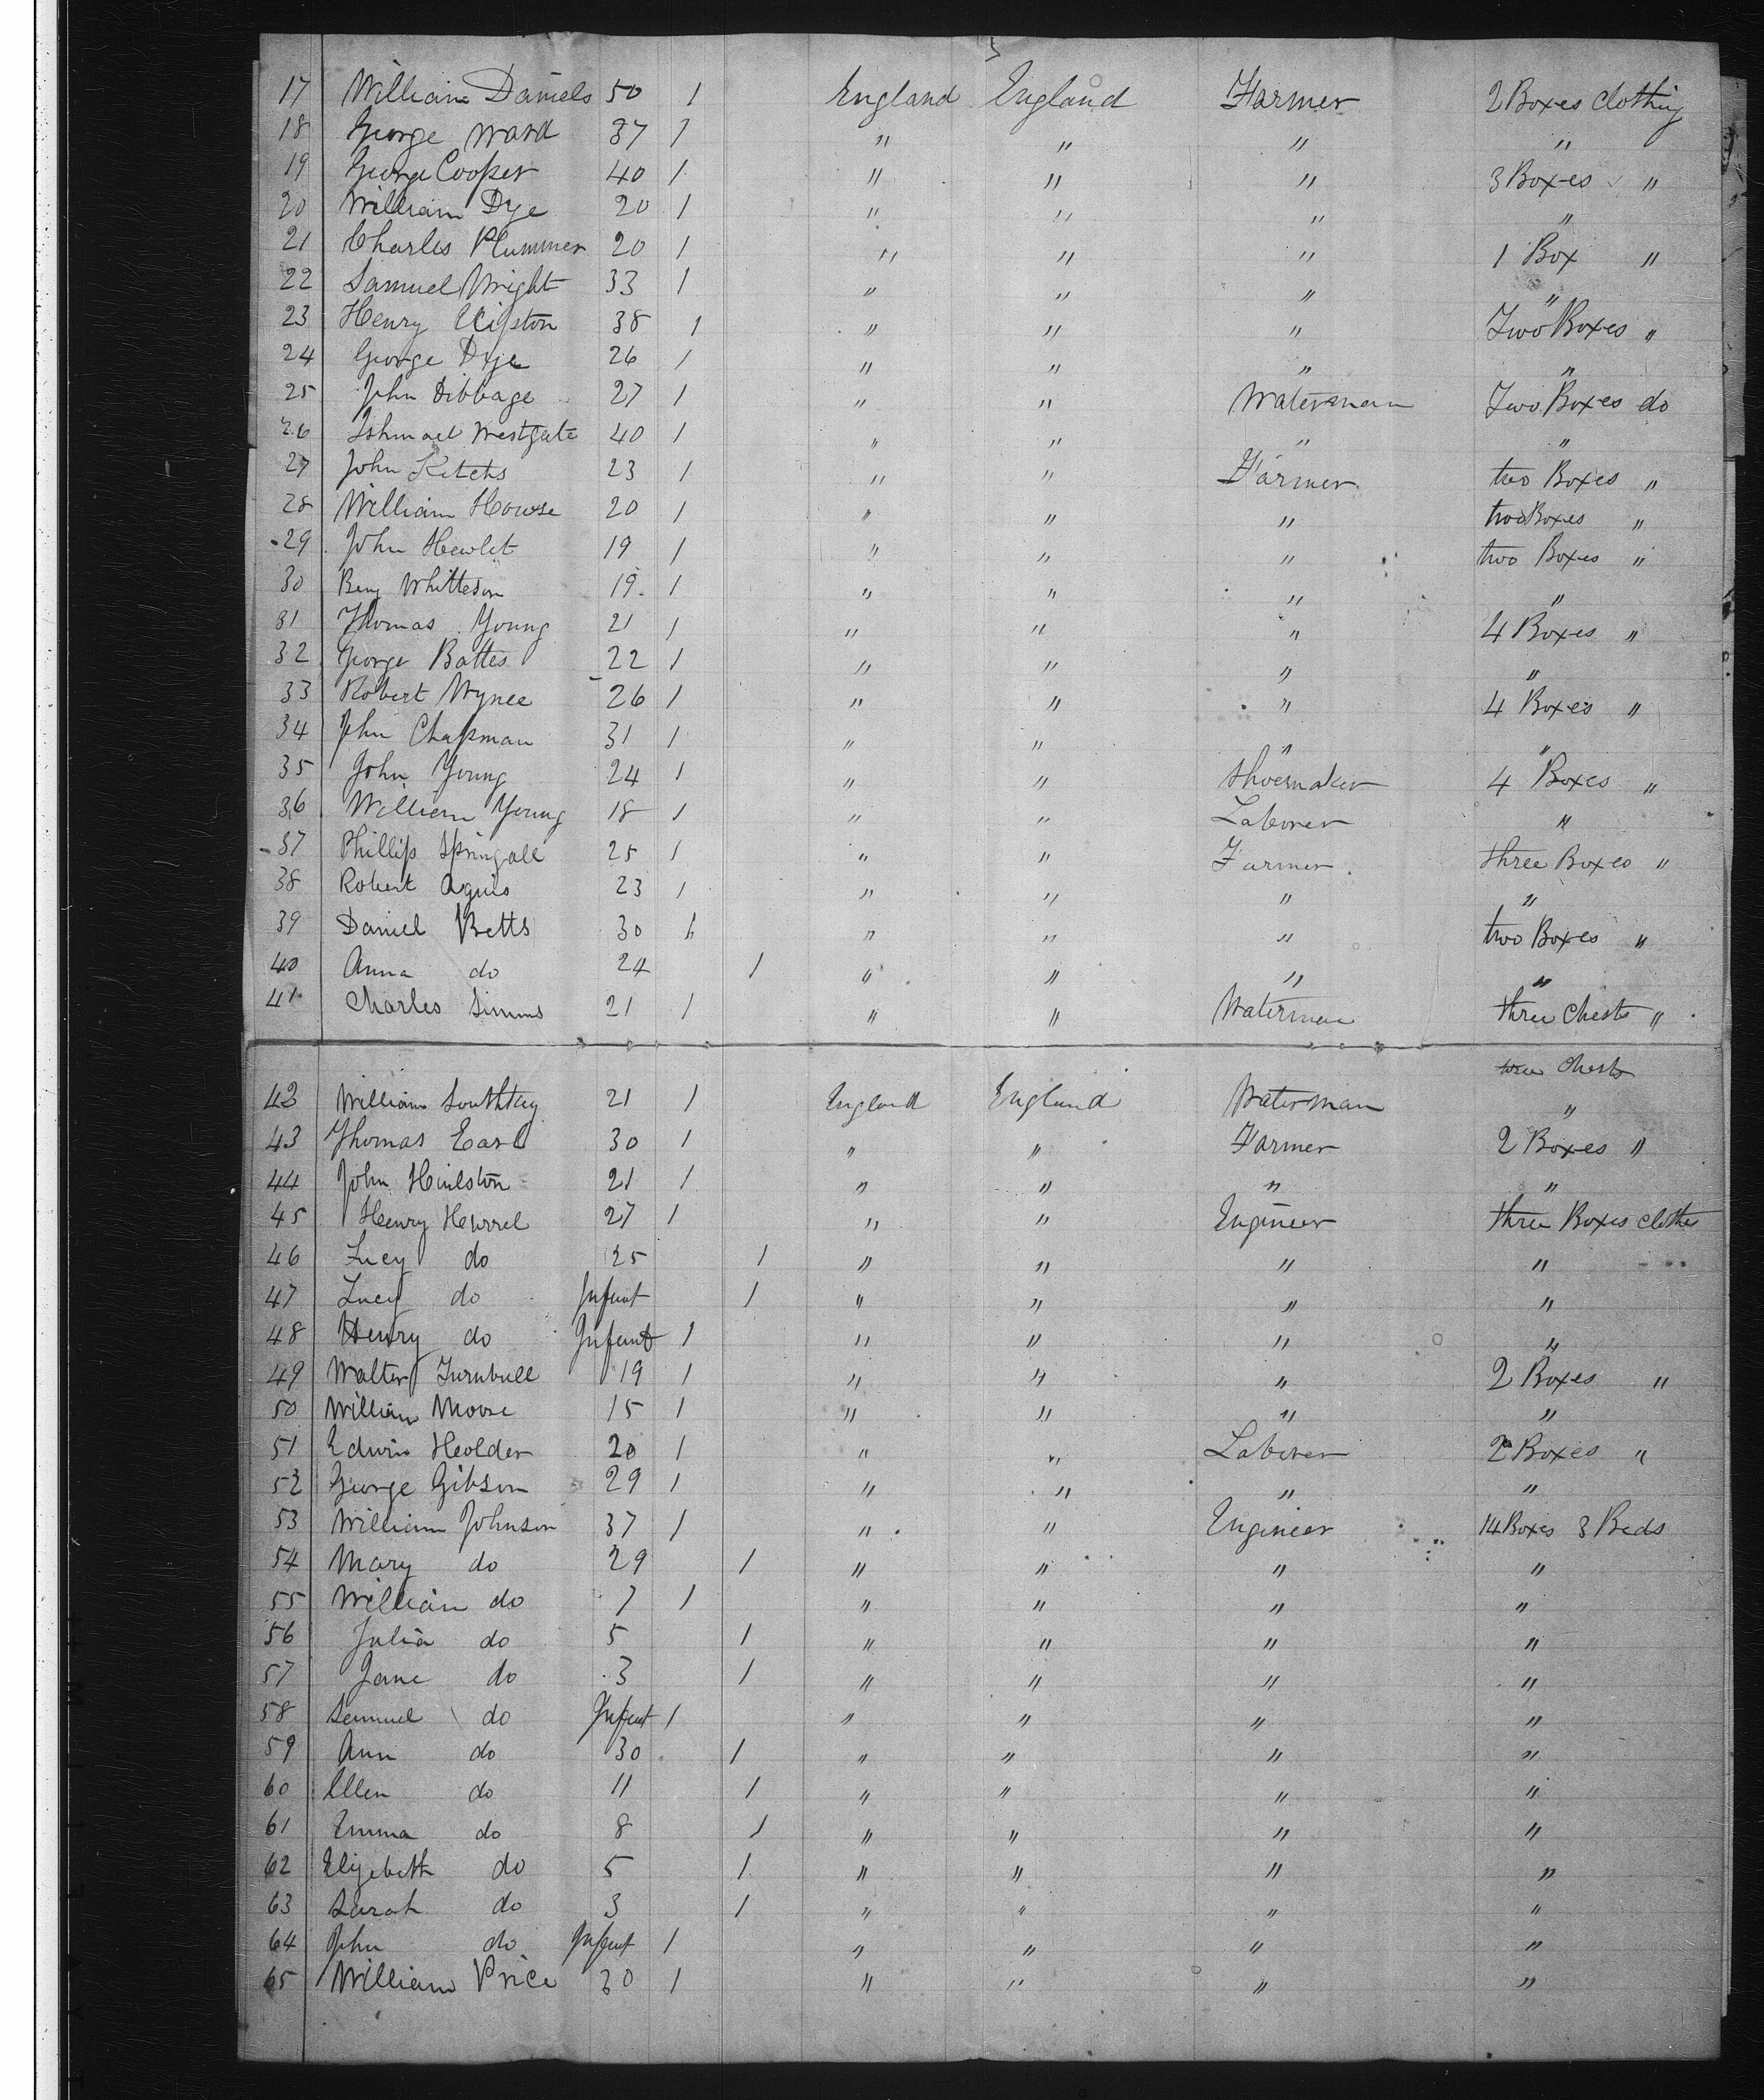 17 William Daniels 50 1 England England Farmer 2 Boxes Clothing
18 George Ward 37 1 " " " "
19 George Cooper 40 1 " " " 3 Boxes "
20 William Dye 20 1 " " " "
21 Charles Plummer 20 1 " " " 1 Box "
22 Samuel Wright 33 1 " " " "
23 Henry 38 1 " " " Two Boxes "
24 George Dye 26 1 " " " "
25 John Dibbage 27 1 " " Waterman Two Boxes do
26 Ishmael Westgate 40 1 " " " "
27 John Ketchs 23 1 " " Farmer two Boxes "
28 William Howse 20 1 " " " two Boxes "
29 John Hewlet 19 1 " " " two Boxes "
30 Benj Whitteson 19 1 " " " "
31 Thomas Young 21 1 " " " 4 Boxes "
32 George Battes 22 1 " " " "
33 Robert Wynee 26 1 " " " 4 Boxes "
34 John Chapman 31 1 " " " "
35 John Young 24 1 " " Shoemaker 4 Boxes "
36 William Young 18 1 " " Laborer "
37 Phillip Springall 25 1 " " Farmer three Boxes "
38 Robert Aguis 23 1 " " " "
39 Daniel Betts 30 1 " " " two Boxes "
40 Anna do 24 1 " " " "
41 Charles Simms 21 1 " " Waterman three Chests "
three Chests
42 William Southkey 21 1 England England Waterman "
43 Thomas Earl 30 1 " " Farmer 2 Boxes "
44 John Hinlston 21 1 " " " "
45 Henry Hurrel 27 1 " " Engineer three Boxes clothes
46 Lucy do 25 1 " " " "
47 Lucy do Infant 1 " " " "
48 Henry do Infant 1 " " " "
49 Walter Turnbull 19 1 " " " 2 Boxes "
50 William Moore 15 1 " " " "
51 Edwin Holder 20 1 " " Laborer 2 Boxes "
52 George Gibson 29 1 " " " "
53 William Johnson 37 1 " " Engineer 14 Boxes 3 Beds
54 Mary do 29 1 " " " "
55 William do 7 1 " " " "
56 Julia do 5 1 " " " "
57 Jane do 3 1 " " " "
58 Semuel do Infant 1 " " " "
59 Ann do 30 1 " " " "
60 Ellen do 11 1 " " " "
61 Emma do 8 1 " " " "
62 Elizebeth do 5 1 " " " "
63 Sarah do 3 1 " " " "
64 John do Infant 1 " " " "
65 William Price 30 1 " " " "